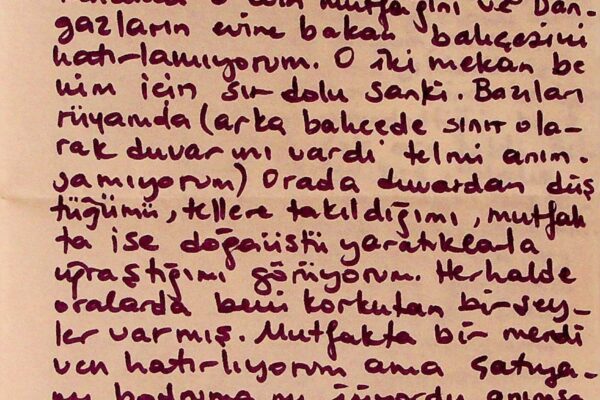 o evin mutfağını ve Dan-
gazların evine bakan bahçesini
hatırlamıyorum. O iki mekan be
nim için sır dolu sanki. Bazıları
rüyamda (arka bahçede sınır ola-
rak duvar mı vardı telmi anım-
samıyorum) Orada duvardan düş
tüğümü, tellere takıldığımı, mutfak
ta ise doğaüstü yaratıklarla
uğraştığımı görüyorum. Herhalde
oralarda beni korkutan birşey-
ler varmış. Mutfakta bir merdi
ven hatırlıyorum ama çatıya-
mı bodruma mı